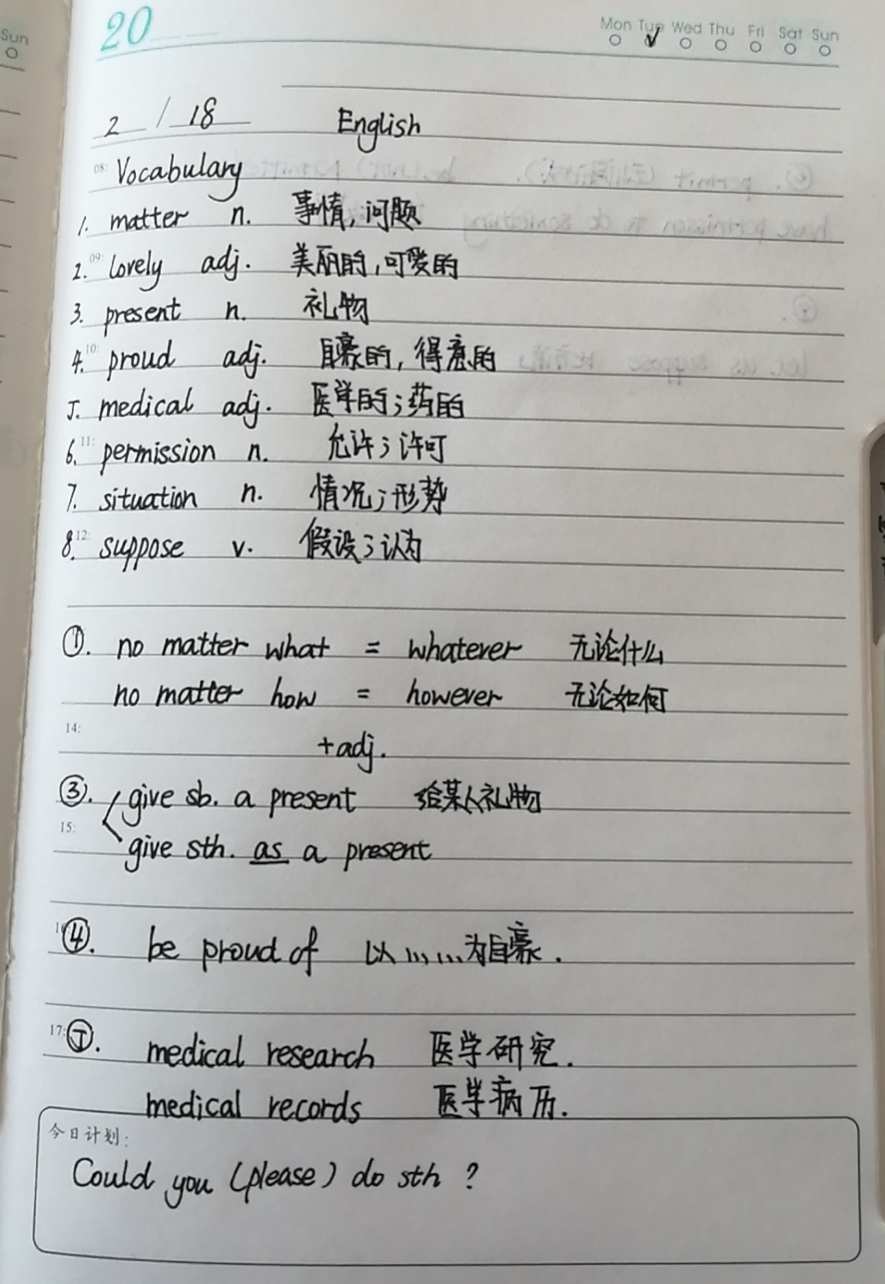 Sun
20
Mon Tue Wed Thu Fri Sat Sun
2 / 18 English
08: Vocabulary
1. matter n. 事情,问题
2. 09: lovely adj. 美丽的,可爱的
3. present n. 礼物
4. 10: proud adj. 自豪的,得意的
5. medical adj. 医学的;药的
6. 11: permission n. 允许;许可
7. situation n. 情况;形势
8. 12: suppose v. 假设;认为
①. no matter what = whatever 无论什么
no matter how = however 无论如何
14:
+adj.
③. give sb. a present 给某人礼物
15:
give sth. as a present
④. be proud of 以......为自豪.
17: ⑤. medical research 医学研究.
medical records 医学病历.
今日计划:
Could you (please) do sth ?